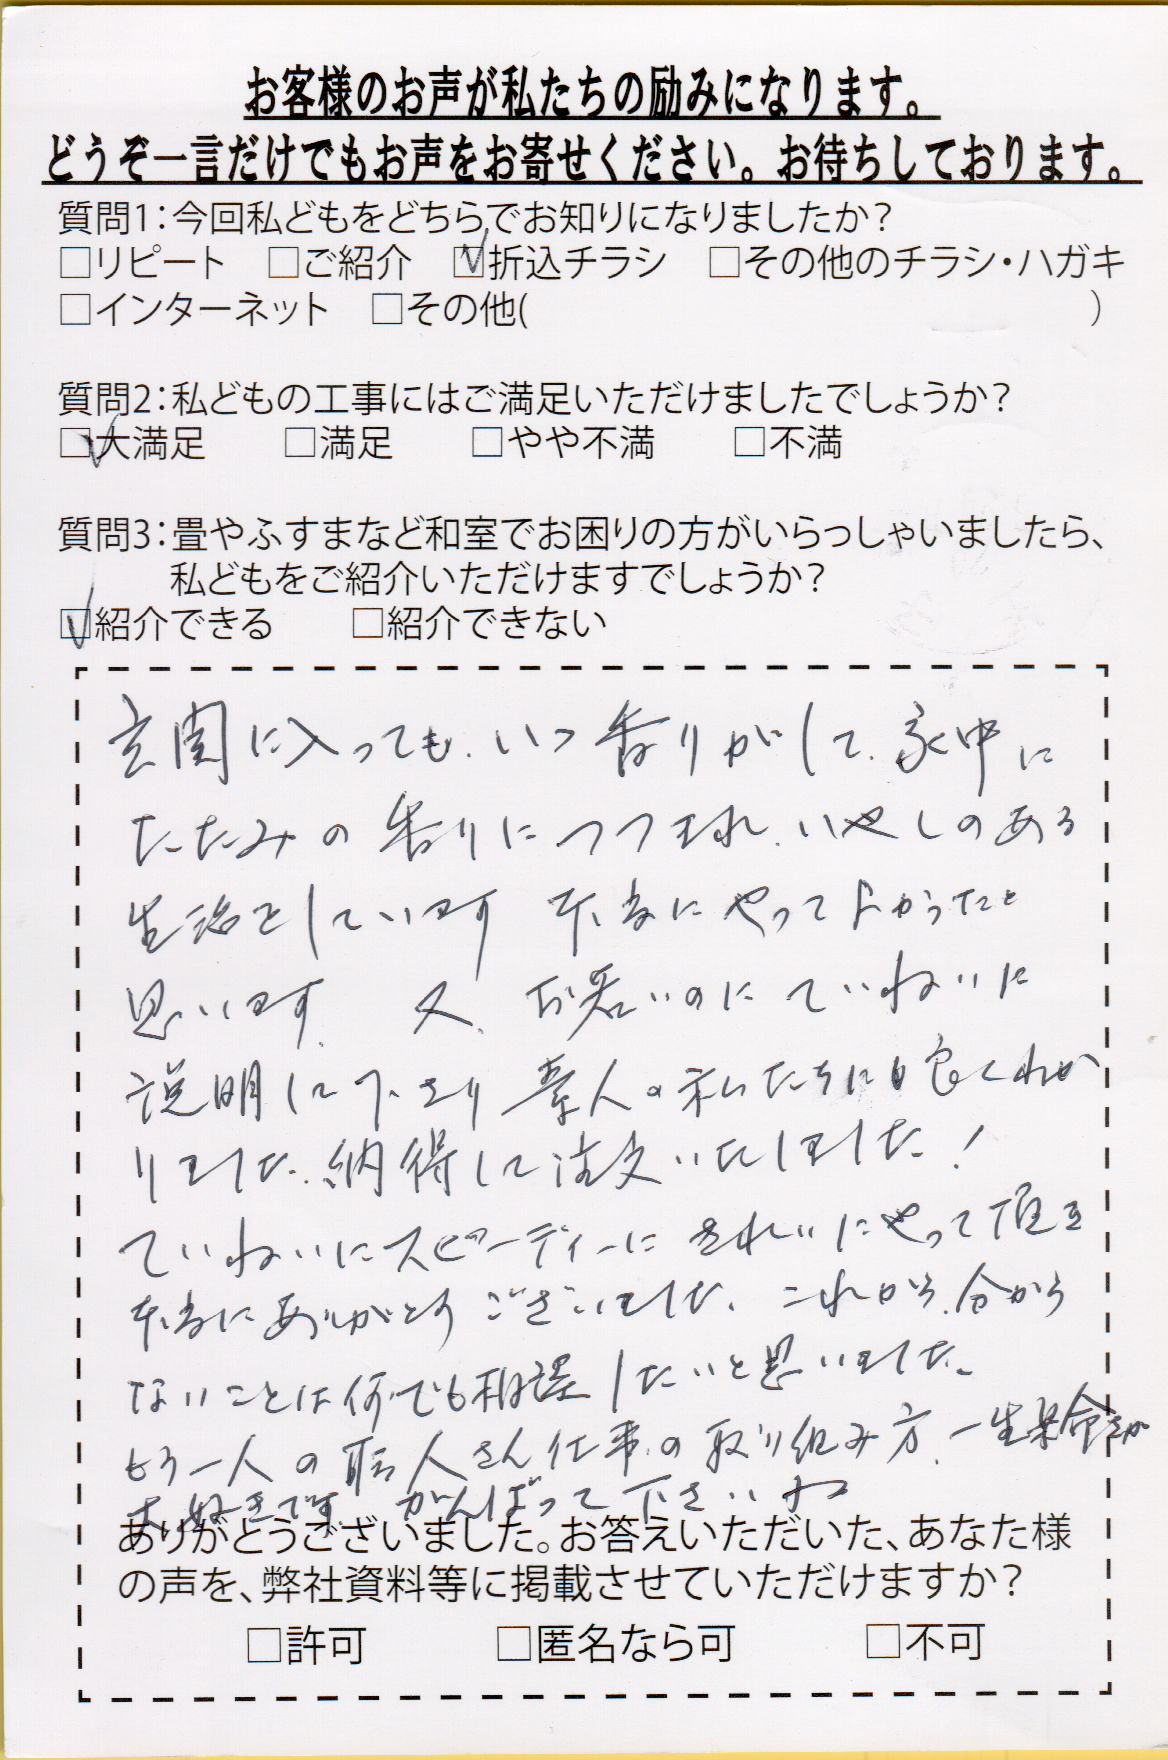 お客様のお声が私たちの励みになります。
どうぞ一言だけでもお声をお寄せください。お待ちしております。
質問1：今回私どもをどちらでお知りになりましたか？
□リピート □ご紹介 ☑折込チラシ □その他のチラシ・ハガキ
□インターネット □その他( )
質問2：私どもの工事にはご満足いただけましたでしょうか？
☑大満足 □満足 □やや不満 □不満
質問3：畳やふすまなど和室でお困りの方がいらっしゃいましたら、
私どもをご紹介いただけますでしょうか？
☑紹介できる □紹介できない
玄関に入っても、いつ香りがして、家中に
たたみの香りにつつまれ、いやしのある
生活をしています 本当にやってよかったと
思います。又、お若いのにていねいに
説明して下さり素人の私たちにも良くわか
りました。納得して注文いたしました！
ていねいにスピーディーにきれいにやって頂き
本当にありがとうございました。これから、分から
ないことは何でも相談したいと思いました。
もう一人の職人さん仕事の取り組み方、一生県命さが
大好きです。がんばって下さいね
ありがとうございました。お答えいただいた、あなた様
の声を、弊社資料等に掲載させていただけますか？
□許可 □匿名なら可 □不可